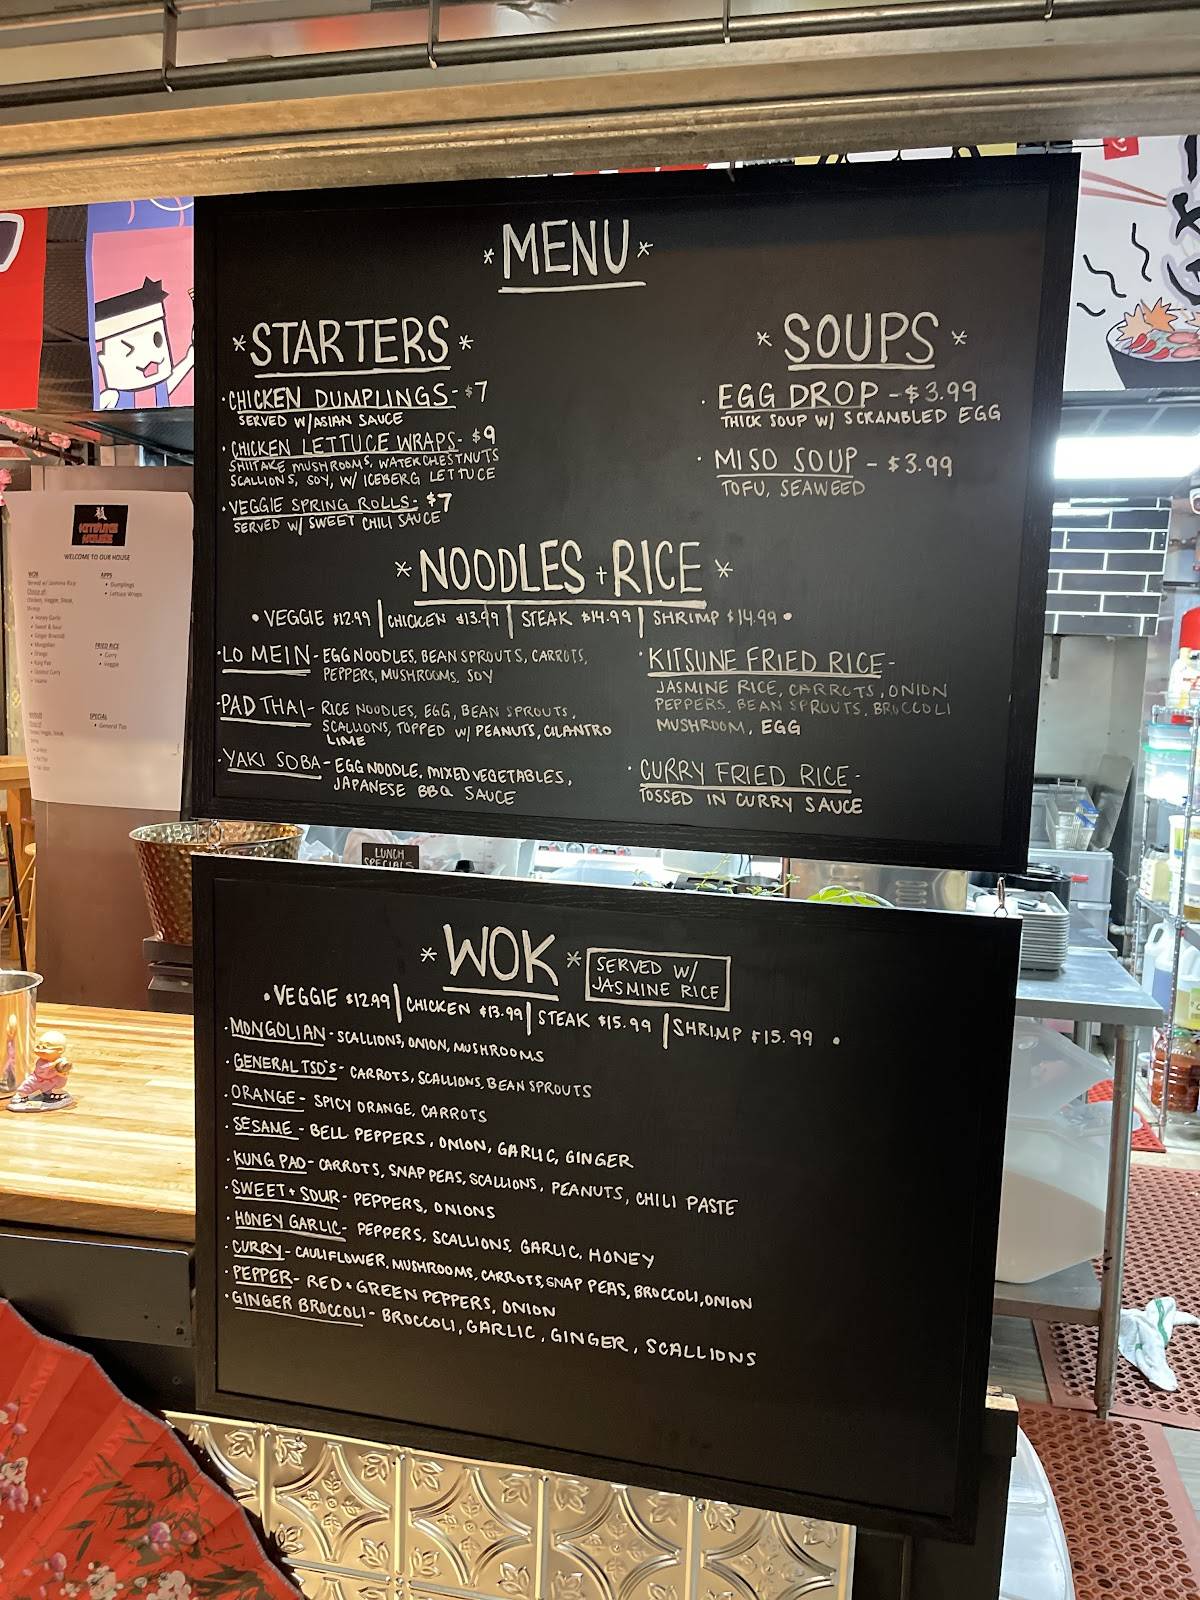 * MENU *
* STARTERS *
· CHICKEN DUMPLINGS - $7
SERVED W/ASIAN SAUCE
· CHICKEN LETTUCE WRAPS - $9
SHIITAKE MUSHROOMS, WATER CHESTNUTS
SCALLIONS, SOY, W/ ICEBERG LETTUCE
· VEGGIE SPRING ROLLS - $7
SERVED W/ SWEET CHILI SAUCE
* SOUPS *
· EGG DROP - $3.99
THICK SOUP W/ SCRAMBLED EGG
· MISO SOUP - $3.99
TOFU, SEAWEED
* NOODLES + RICE *
• VEGGIE $12.99 | CHICKEN $13.99 | STEAK $14.99 | SHRIMP $14.99 •
· LO MEIN - EGG NOODLES, BEAN SPROUTS, CARROTS,
PEPPERS, MUSHROOMS, SOY
· PAD THAI - RICE NOODLES, EGG, BEAN SPROUTS,
SCALLIONS, TOPPED W/ PEANUTS, CILANTRO
LIME
· YAKI SOBA - EGG NOODLE, MIXED VEGETABLES,
JAPANESE BBQ SAUCE
· KITSUNE FRIED RICE -
JASMINE RICE, CARROTS, ONION
PEPPERS, BEAN SPROUTS, BROCCOLI
MUSHROOM, EGG
· CURRY FRIED RICE -
TOSSED IN CURRY SAUCE
LUNCH
SPECIALS
* WOK *
SERVED W/
JASMINE RICE
• VEGGIE $12.99 | CHICKEN $13.99 | STEAK $15.99 | SHRIMP $15.99 •
· MONGOLIAN - SCALLIONS, ONION, MUSHROOMS
· GENERAL TSO'S - CARROTS, SCALLIONS, BEAN SPROUTS
· ORANGE - SPICY ORANGE, CARROTS
· SESAME - BELL PEPPERS, ONION, GARLIC, GINGER
· KUNG PAO - CARROTS, SNAP PEAS, SCALLIONS, PEANUTS, CHILI PASTE
· SWEET + SOUR - PEPPERS, ONIONS
· HONEY GARLIC - PEPPERS, SCALLIONS, GARLIC, HONEY
· CURRY - CAULIFLOWER, MUSHROOMS, CARROTS, SNAP PEAS, BROCCOLI, ONION
· PEPPER - RED + GREEN PEPPERS, ONION
· GINGER BROCCOLI - BROCCOLI, GARLIC, GINGER, SCALLIONS
KITSUNE
HOUSE
WELCOME TO OUR HOUSE
WOK
Served w/ Jasmine Rice
Choice of:
Chicken, Veggie, Steak,
Shrimp
• Honey Garlic
• Sweet & Sour
• Ginger Broccoli
• Mongolian
• Orange
• Kung Pao
• Coconut Curry
• Sesame
APPS
• Dumplings
• Lettuce Wraps
FRIED RICE
• Curry
• Veggie
SPECIAL
• General Tso